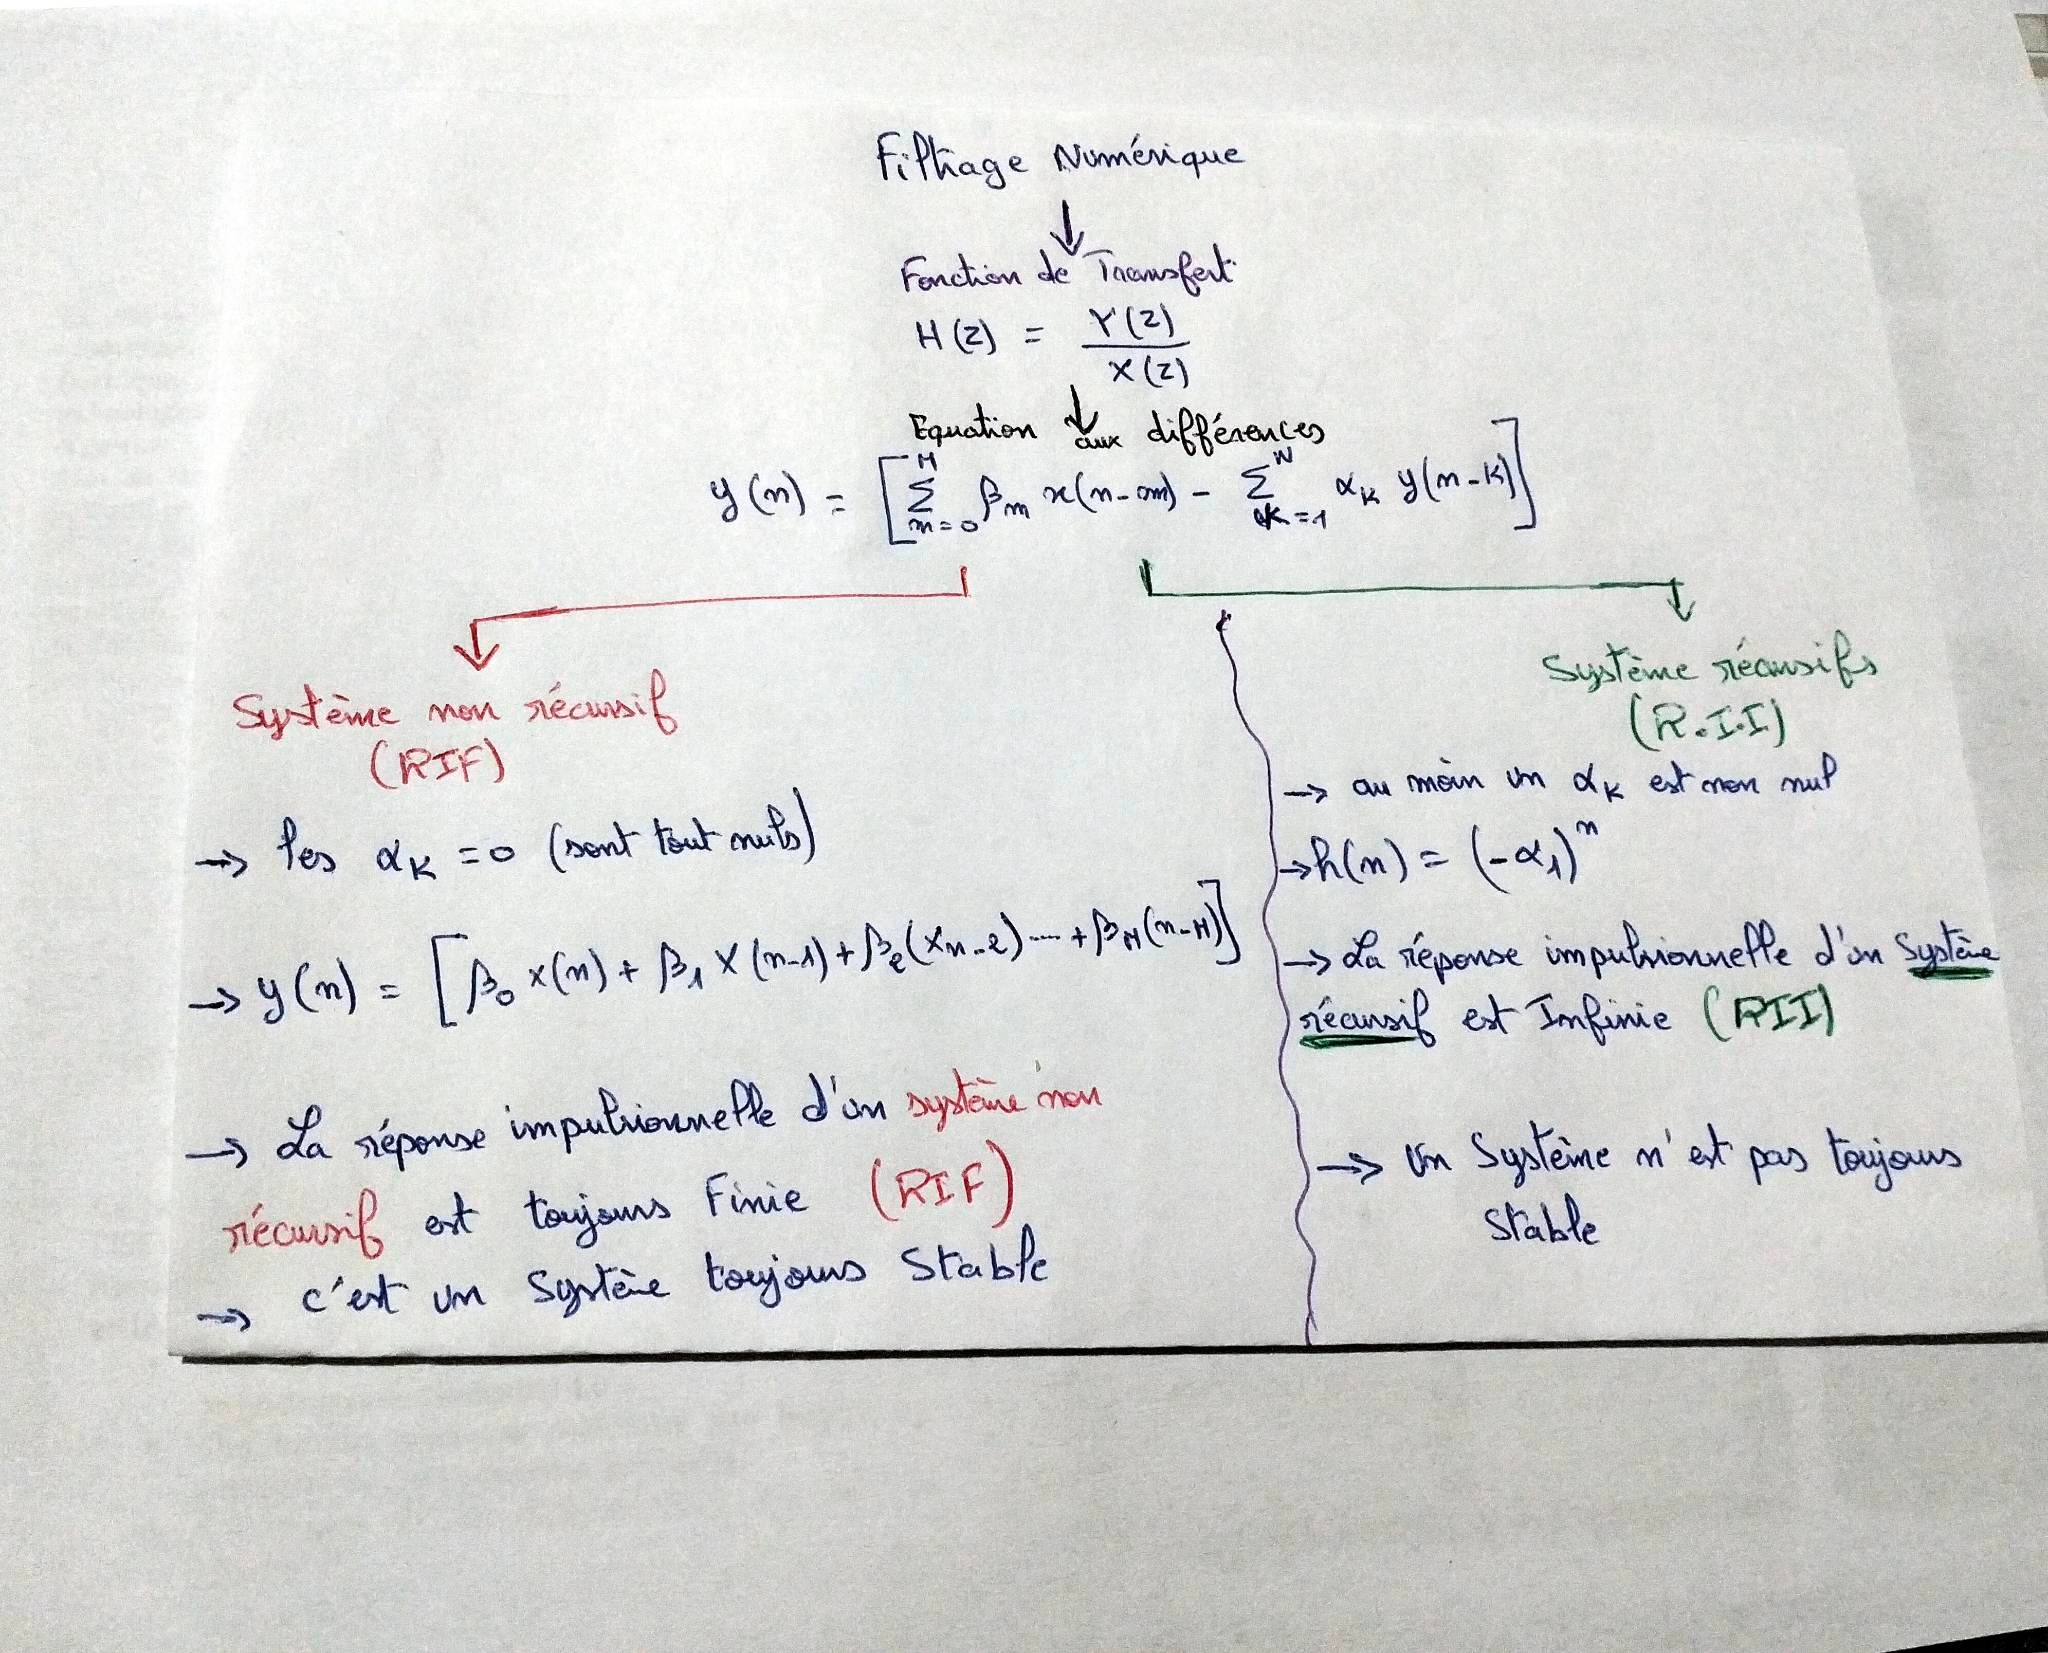 Filtrage Numérique
↓
Fonction de Transfert
H(z) = Y(z) / X(z)
↓
Equation aux différences
y(n) = [ Σ_{m=0}^{M} β_m x(n-m) - Σ_{k=1}^{N} α_k y(n-k) ]
Système non récursif
(RIF)
→ les α_k = 0 (sont tout nuls)
→ y(n) = [ β_0 x(n) + β_1 X(n-1) + β_2 (Xn-2) .... + β_M (n-M) ]
→ La réponse impulsionnelle d'un système non
récursif est toujours Finie (RIF)
→ c'est un Système toujours Stable
Système récursifs
(R.I.I)
→ au moin un α_k est non nul
→ h(n) = (-α_1)^n
→ La réponse impulsionnelle d'un Système
récursif est Infinie (RII)
→ Un Système n'est pas toujours
Stable